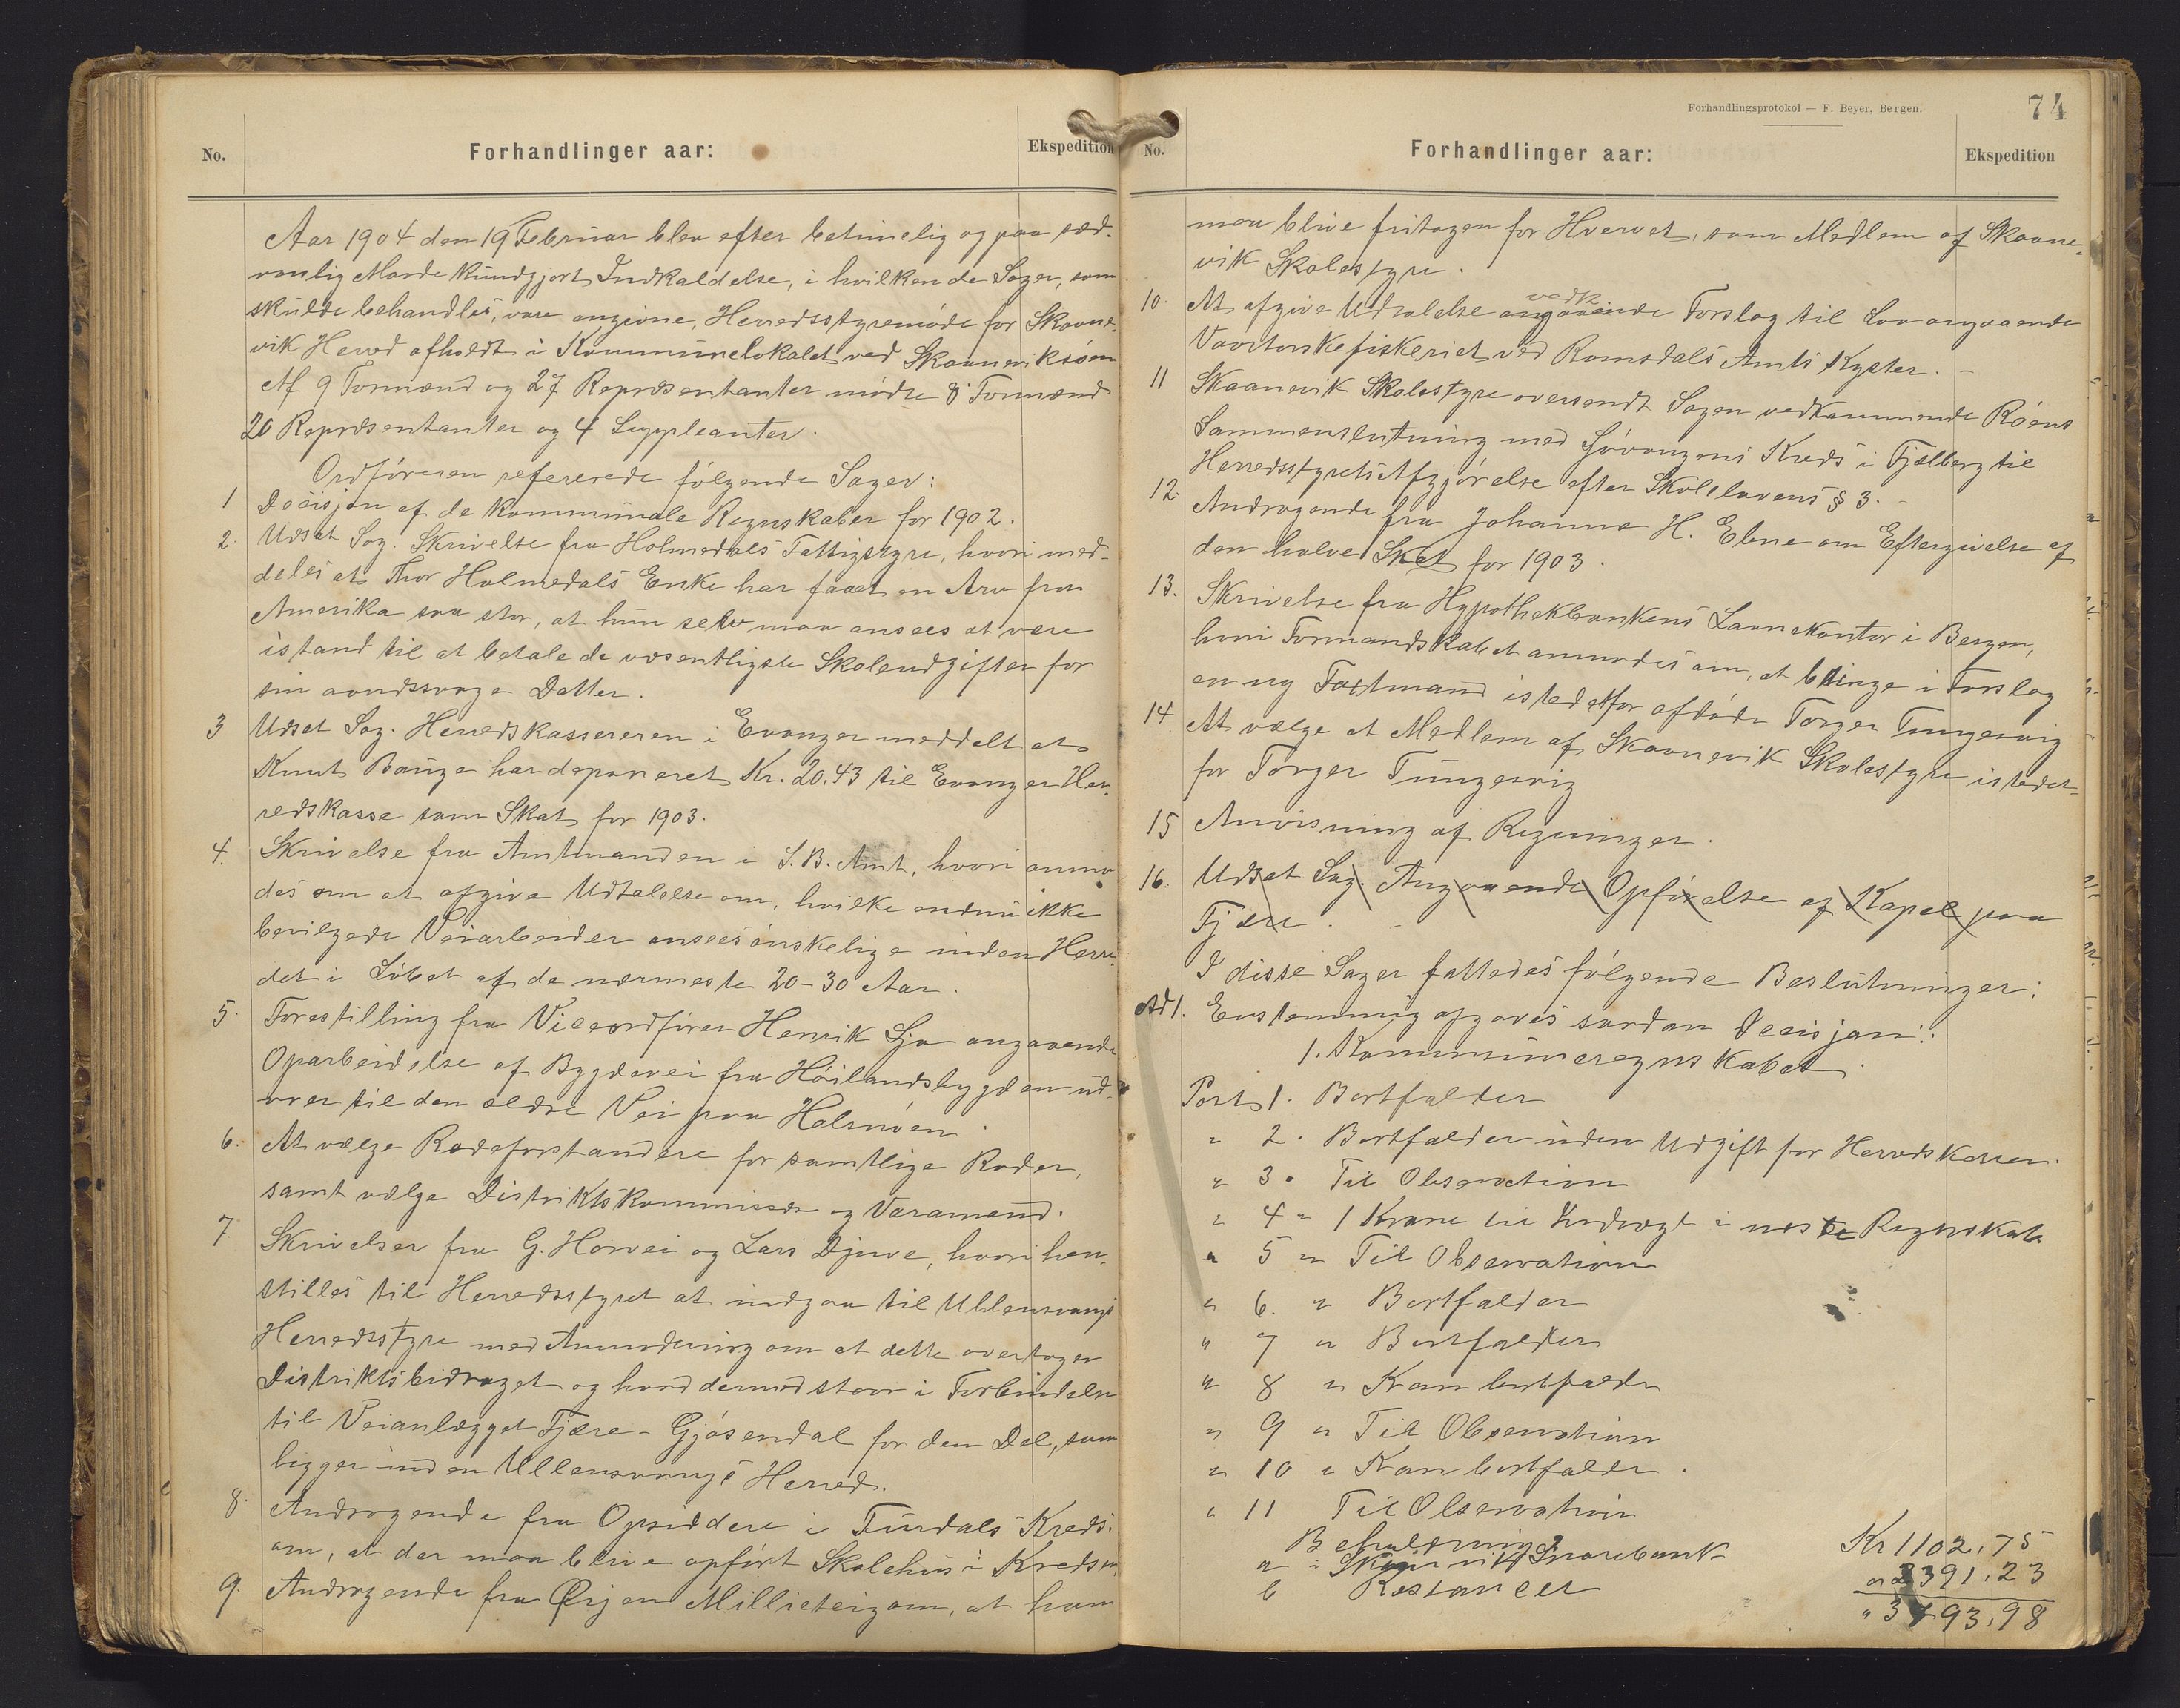 No.
Forhandlinger aar:
Ekspedition
Aar 1904 den 19 Februar blev efter betimelig og paa sæd-
vanlig Maade kundgjort Indkaldelse, i hvilken de Sager, som
skulde behandles, vare angivne, Herredsstyremøde for Skaane-
vik Herred afholdt i Kommunelokalet ved Skaaneviksøen
Af 9 Formænd og 27 Repræsentanter mødte 8 Formænd
20 Repræsentanter og 4 Suppleanter.
Ordføreren refererede følgende Sager:
1 Decisjon af de kommunale Regnskaber for 1902.
2. Udsat Sag. Skrivelse fra Holmedals Fattigstyre, hvori med-
deles at Thor Holmedals Enke har faaet en Arv fra
Amerika saa stor, at hun selv maa ansees at være
istand til at betale de væsentligste Skoleudgifter for
sin aandssvage Datter.
3 Udsat Sag. Herredskassereren i Evanger meddelt at
Knut Bauge har deponeret Kr. 20.43 til Evanger Her-
redskasse som Skat for 1903.
4. Skrivelse fra Amtmanden i S. B. Amt, hvori anmo-
des om at afgive Udtalelse om, hvilke endnu ikke
bevilgede Veiarbeider ansees ønskelige inden Herre-
det i Løbet af de nærmeste 20-30 Aar.
5. Forestilling fra Viceordfører Henrik Sjo angaaende
Oparbeidelse af Bygdevei fra Høilandsbygden ud-
over til den ældre Vei paa Holsnøen.
6. At vælge Rodeforstandere for samtlige Roder,
samt vælge Distriktskommissær og Varamand.
7. Skrivelser fra G. Horvei og Lars Djuve, hvori hen-
stilles til Herredsstyret at indgaa til Ullensvangs
Herredsstyre med Anmodning om at dette overtager
Distriktsbidraget og hvad dermed staar i Forbindelse
til Veianlægget Fjære - Gjøsendal for den Del, som
ligger inden Ullensvangs Herred.
8. Andragende fra Opsiddere i Furdals Kreds
om, at der maa blive opført Skolehus i Kredsen.
9. Andragende fra Ørjan Millieteig om, at han
Forhandlingsprotokol — F. Beyer, Bergen.
74
No.
Forhandlinger aar:
Ekspedition
maa blive fritagen for Hvervet, som Medlem af Skaane-
vik Skolestyre.
10. At afgive Udtalelse angaaende vedk. Forslag til Lov angaaende
Vaartorskefiskeriet ved Romsdals Amts Kyster. -
11 Skaanevik Skolestyre oversendt Sagen vedkommende Røens
Sammenslutning med Gjøvangens Kreds i Fjelberg til
Herredsstyrets Afgjørelse efter Skolelovens § 3. -
12. Andragende fra Johanne H. Ebne om Eftergivelse af
den halve Skat for 1903.
13. Skrivelse fra Hypothekbankens Laanekontor i Bergen,
hvori Formandskabet anmodes om, at bringe i Forslag
en ny Takstmand istedetfor afdøde Torger Tungesvig
14. At vælge et Medlem af Skaanevik Skolestyre istedet-
for Torger Tungesvig
15 Anvisning af Regninger.
16. Udsat Sag. Angaaende Opførelse af Kapel paa
Fjære.
I disse Sager fattedes følgende Beslutninger:
Ad 1. Enstemmig afgaves saadan Decisjon:
1. Kommuneregnskabet.
Post 1. Bortfalder
" 2. Bortfalder uden Udgift for Herredskassen.
" 3. Til Observation
" 4 " 1 Krone til Indtægt i neste Regnskab
" 5 " Til Observation
" 6. " Bortfalder
" 7 " Bortfalder
" 8 " Kan bortfalde
" 9 " Til Observation
" 10 " Kan bortfalde.
" 11 Til Observation
Beholdning
a i Skaanevik Sparebank Kr 1102,75
b Restancer " 2391.23
" 3493,98